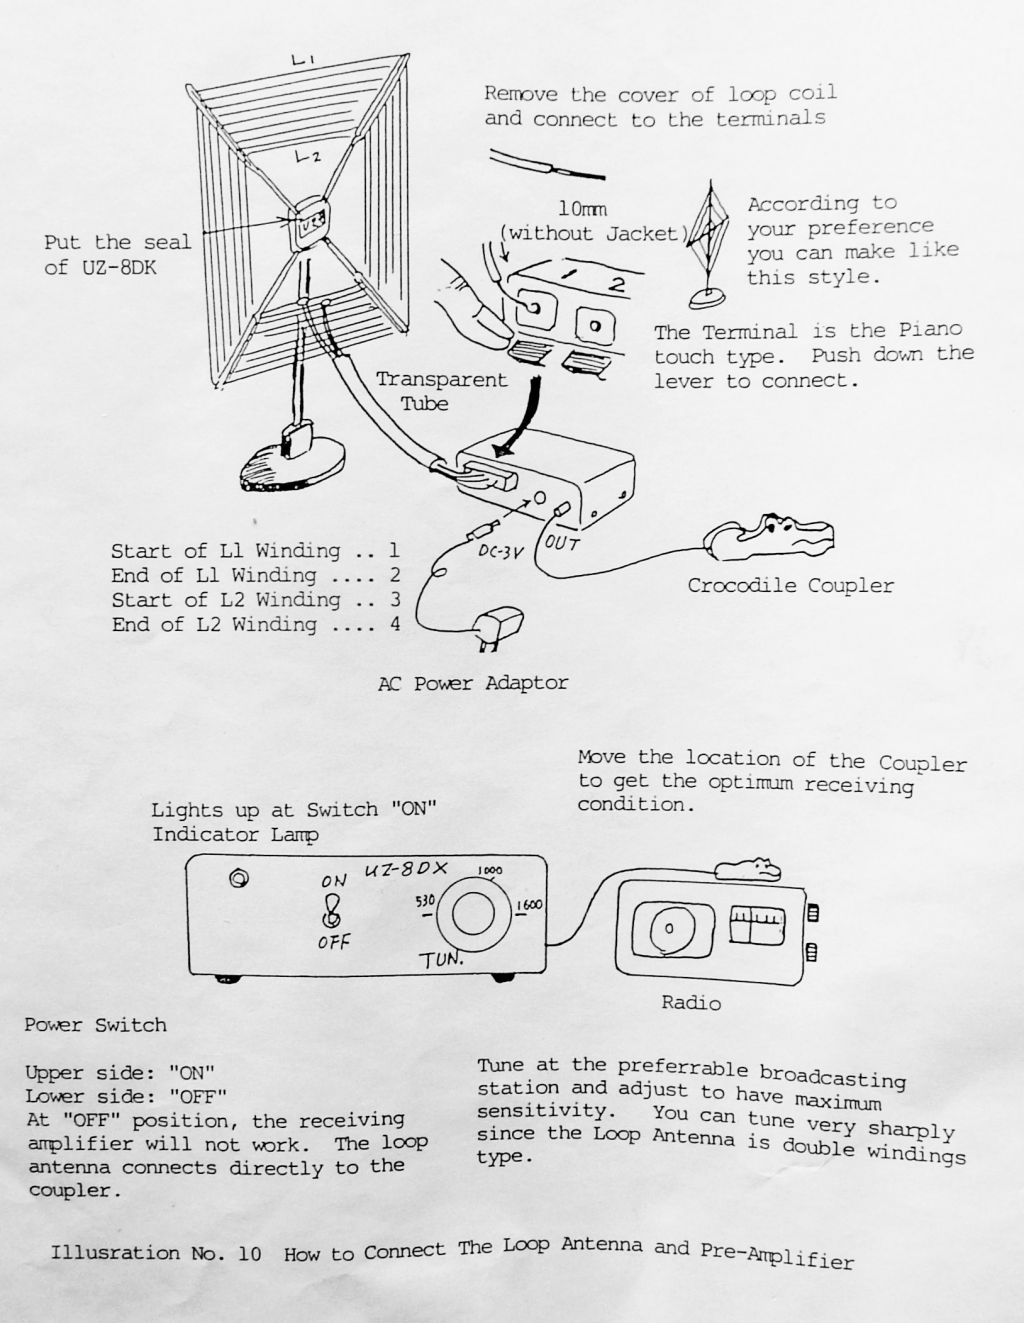 L1
L2
Put the seal
of UZ-8DK
Remove the cover of loop coil
and connect to the terminals
10mm
(without Jacket)
1 2
According to
your preference
you can make like
this style.
The Terminal is the Piano
touch type. Push down the
lever to connect.
Transparent
Tube
DC-3V
OUT
Start of L1 Winding .. 1
End of L1 Winding .... 2
Start of L2 Winding .. 3
End of L2 Winding .... 4
Crocodile Coupler
AC Power Adaptor
Move the location of the Coupler
to get the optimum receiving
condition.
Lights up at Switch "ON"
Indicator Lamp
UZ-8DX
ON
OFF
530
1000
1600
TUN.
Radio
Power Switch
Upper side: "ON"
Lower side: "OFF"
At "OFF" position, the receiving
amplifier will not work. The loop
antenna connects directly to the
coupler.
Tune at the preferrable broadcasting
station and adjust to have maximum
sensitivity. You can tune very sharply
since the Loop Antenna is double windings
type.
Illusration No. 10 How to Connect The Loop Antenna and Pre-Amplifier